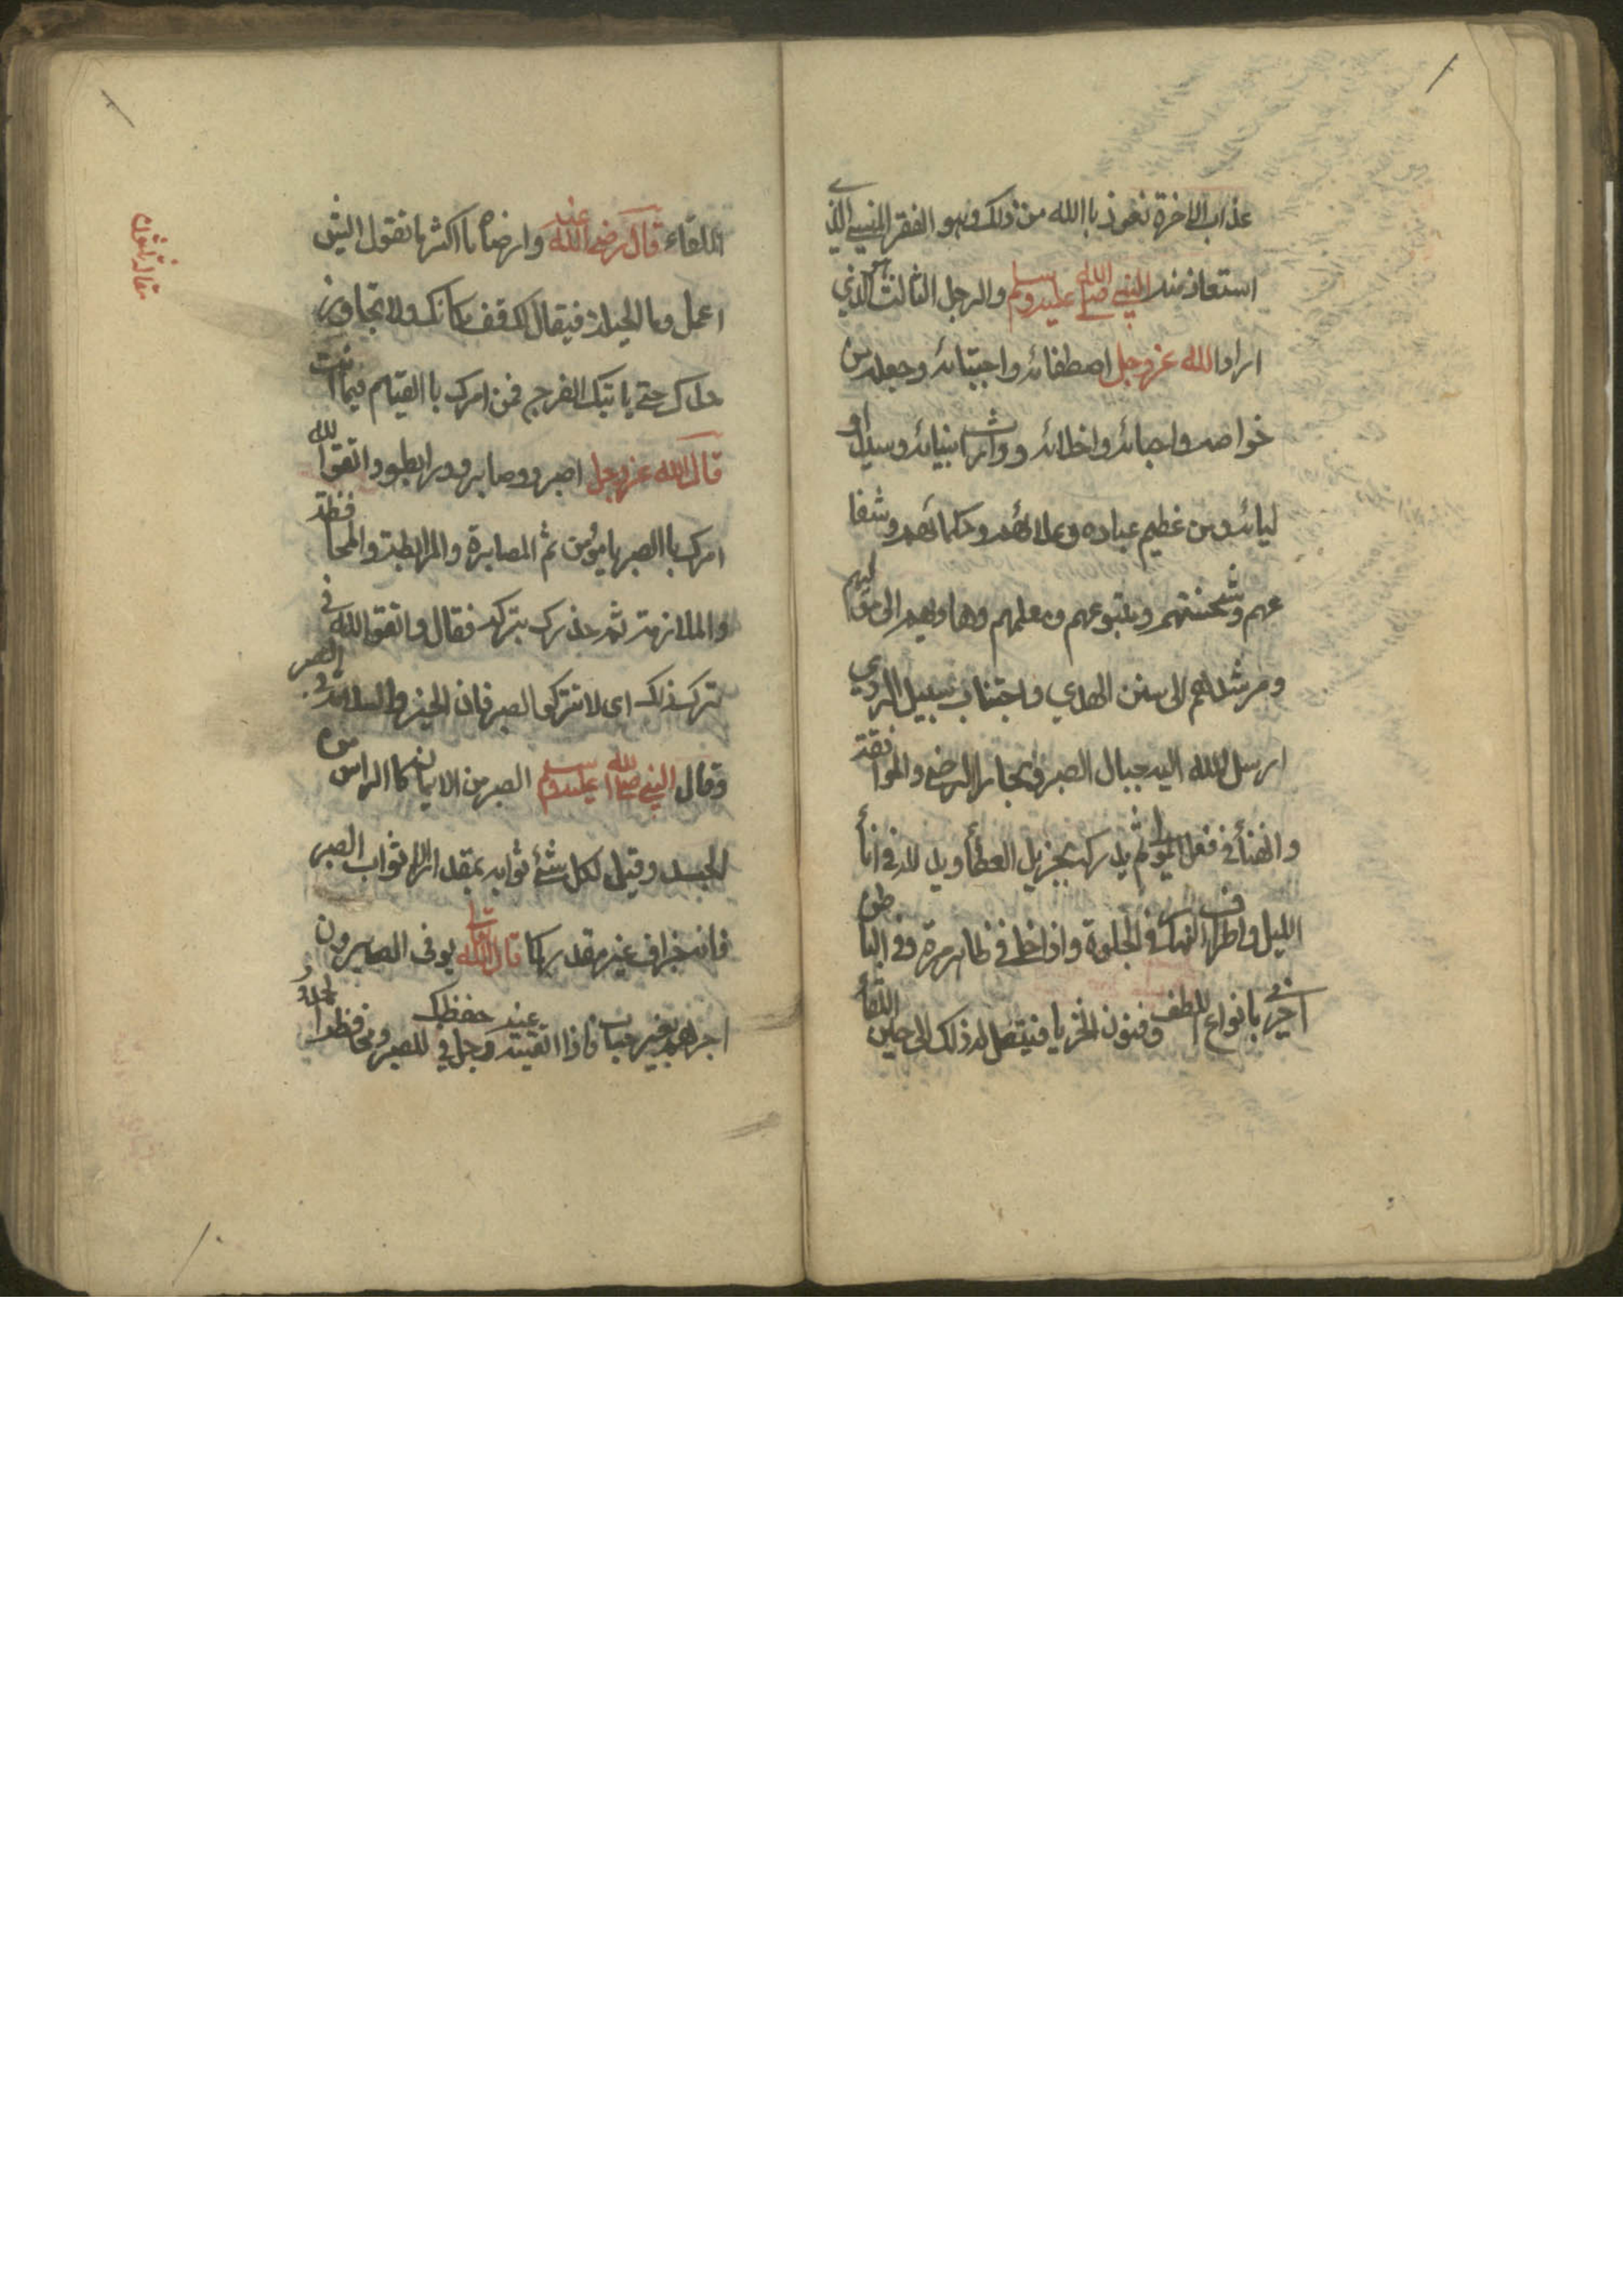 عذاب الاخرة نعوذ باالله من ذلك وهو الفقر المنسي الذي
استعاذ منه النبي صلى الله عليه وسلم والرجل الثالث هو الذي
اراد الله عزوجل اصطفائه واجتبائه وجعله من
خواصه واحبائه واخلائه ووارث انبيائه وسيد او
ليائه ومن عظيم عباده وعلمائهم وحكمائهم وشفا
عهم وشحنتهم ومتبوعهم ومعلمهم وهاديهم الى مولهم
ومرشدهم الى سنن الهدي واجتناب سبيل الردي
ارسل الله اليه جبال الصبر وبحار الرضى والموافقة
والفنأ في فعل المولى ثم يدركه بجزيل العطأ ويدلله في انأ
الليل واطراف النهار في الجلوة واذا خلا في ظاهر مرة وفي الباطن
اخرى بانواع اللطف وفنون الخزيا فيتصل له ذلك الى حين اللقأ
اللقاء قال رضى الله عنه وارضاه ما اكثر ما تقول ايش
اعمل وما الحيلة فيقال لك قف مكانك ولا تجاوز
حدك حتى ياتيك الفرج فمن امرك باالقيام فيما انت
قال الله عزوجل اصبرو وصابرو ورابطو واتقوا لله
امرك باالصبر يا مؤمن ثم المصابرة والمرابطة والمحافظة
والملازمة ثم حذرك بتركه فقال واتقوالله في
ترك ذلك اى لا تتركو الصبر فان الخير والسلامة في الصبر
وقال النبي صلى لله عليه وسلم الصبر من الايمان كاالراس من
الجسد وقيل لكل شئ ثوابه بمقدار الا ثواب الصبر
فانه جزاف غير مقدر كما قال الله تعالى يوفى الصابرون
اجرهم بغير حساب فاذا اتقيته عز وجل في حفظك للصبر ومحافظة لحدوده
مقاله تقول